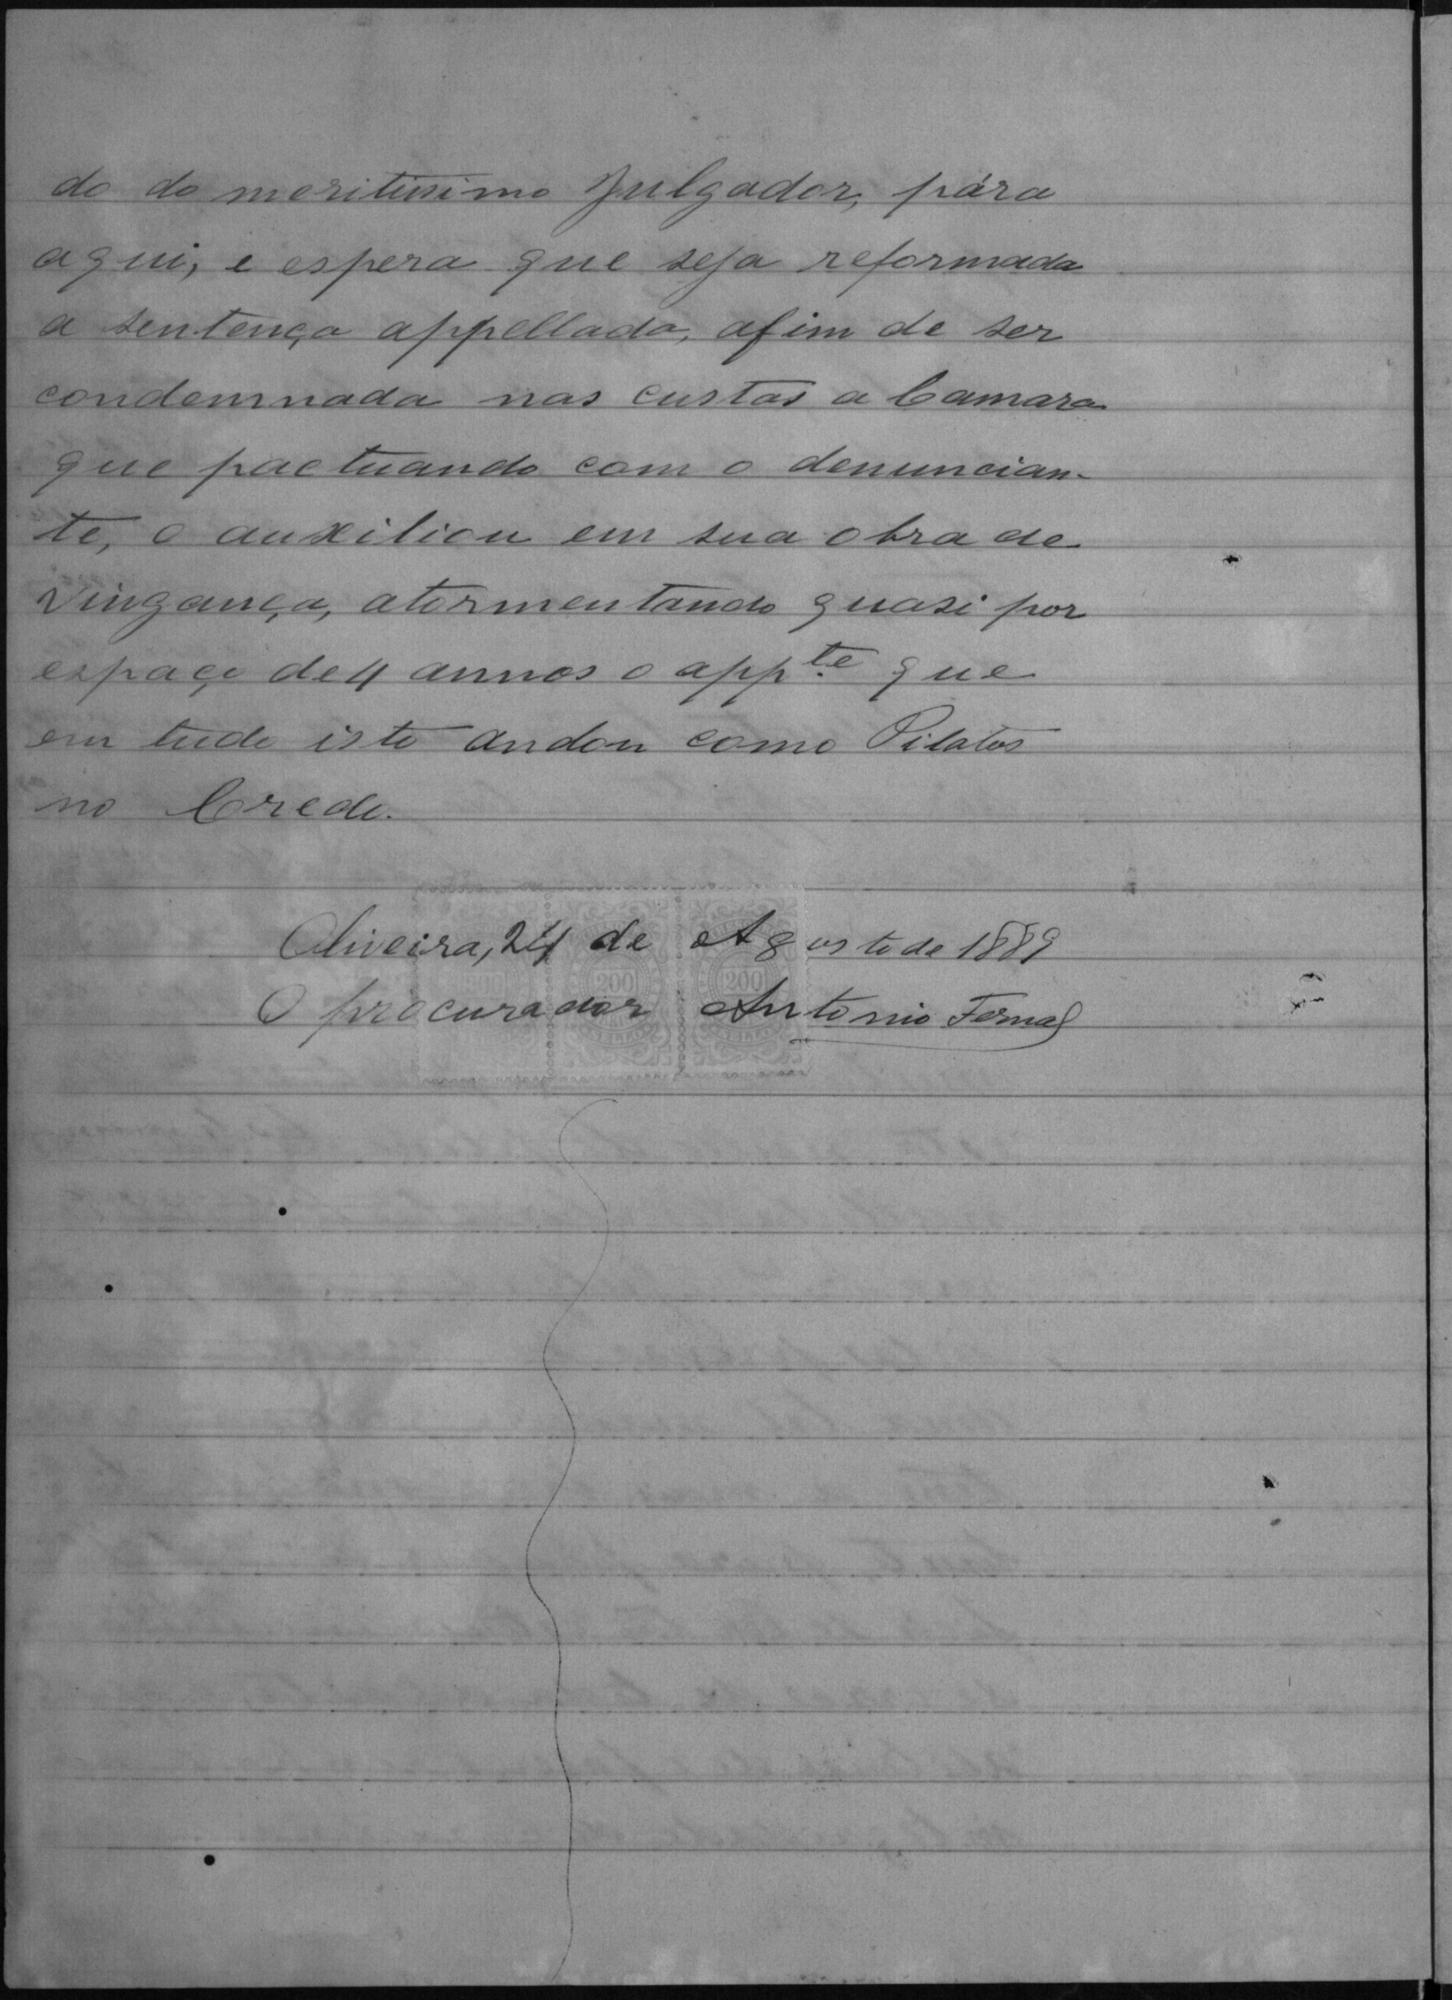 do do meritissimo Julgador, pára
aqui, e espera que seja reformada
a sentença appellada, afim de ser
condemnada nas custas a Camara
que pactuando com o denuncian-
te, o auxiliou em sua obra de
vingança, atormentando quasi por
espaço de 4 annos o app.te que
em tudo isto andou como Pilatos
no Credo.
Oliveira, 24 de Agosto de 1889
200 200 200
O procurador Antonio Fernal